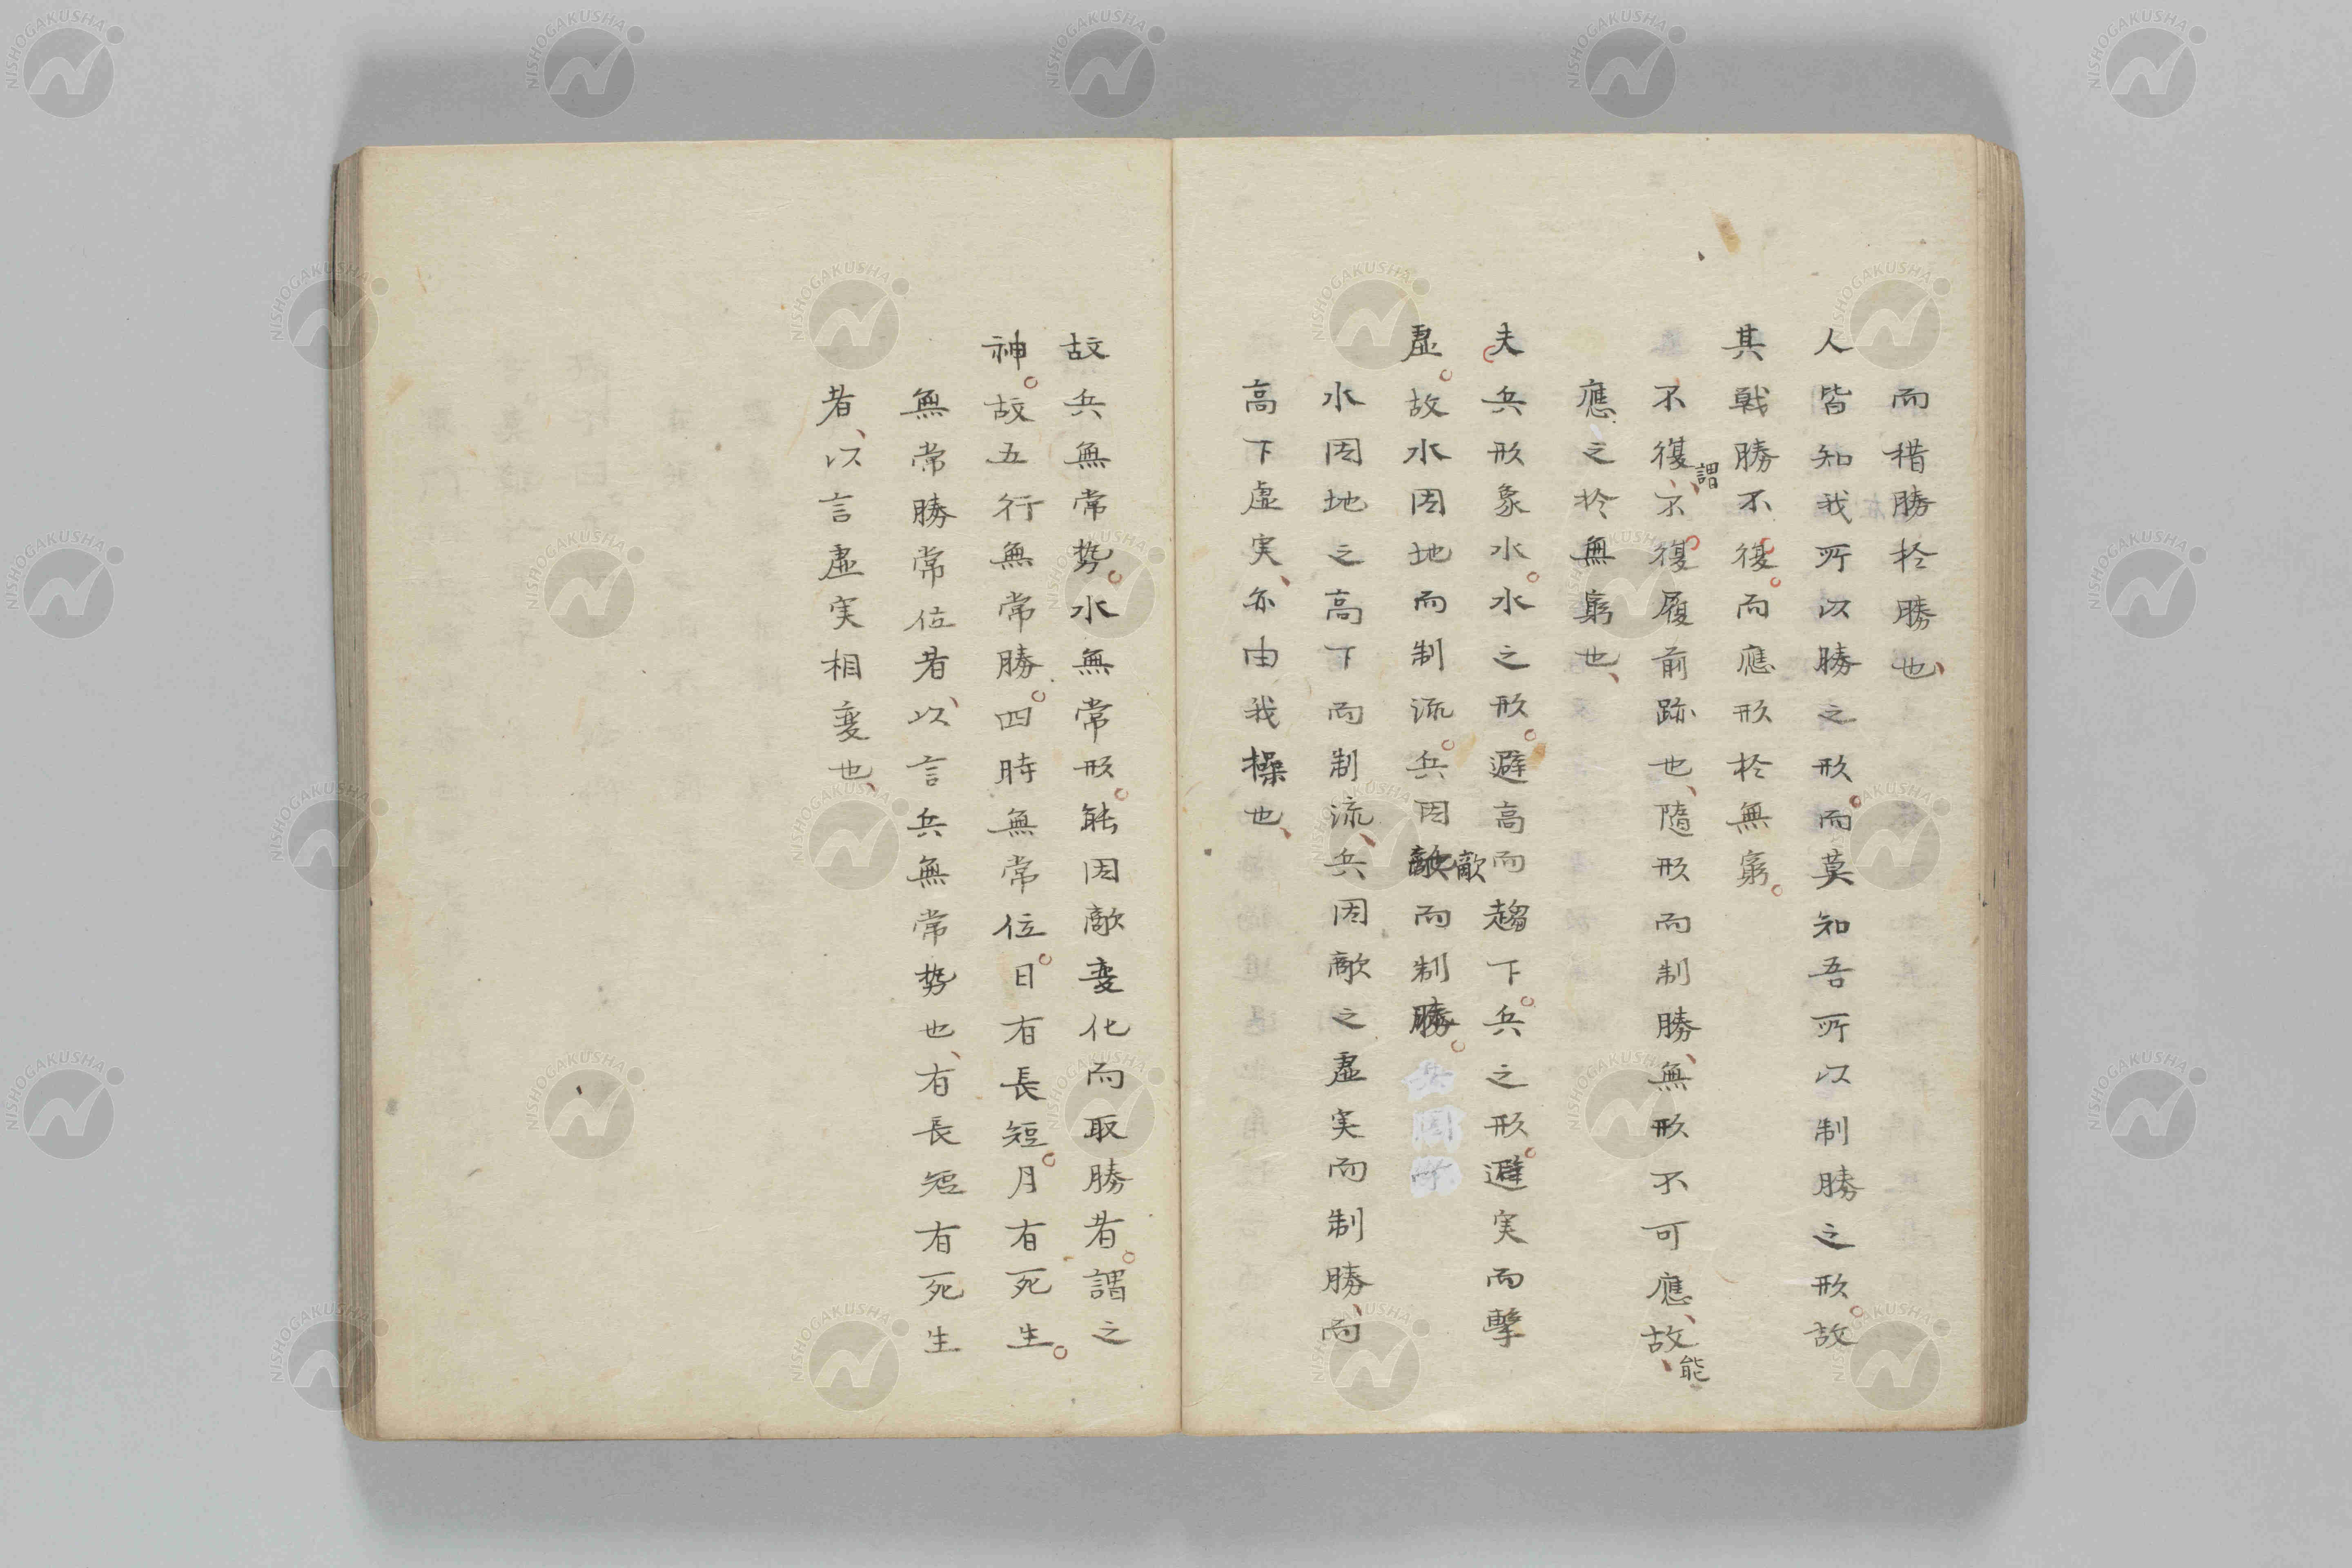 而措勝於勝也、
人皆知我所以勝之形。而莫知吾所以制勝之形。故
其戦勝不復。而應形於無窮。
不復、謂不復履前跡也、隨形而制勝、無形不可應、故、能
應之於無窮也、
夫兵形象水。水之形。避高而趨下。兵之形。避実而擊
虚。故水因地而制流。兵因敵而制勝。
水因地之高下而制流、兵因敵之虚実而制勝、而
高下虚実、亦由我操也、
故兵無常勢。水無常形。能因敵変化而取勝者。謂之
神。故五行無常勝。四時無常位。日有長短。月有死生。
無常勝常位者、以言兵無常勢也、有長短有死生
者、以言虚実相変也、